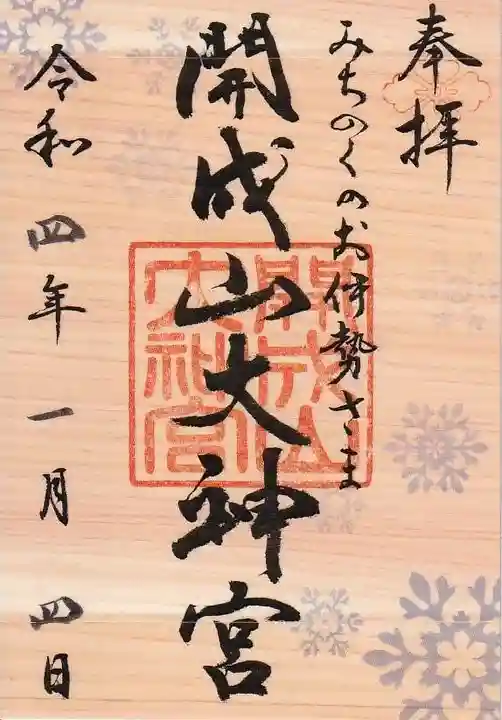 奉拝
みちのくのお伊勢さま
開成山大神宮
開成山大神宮
令和四年一月四日